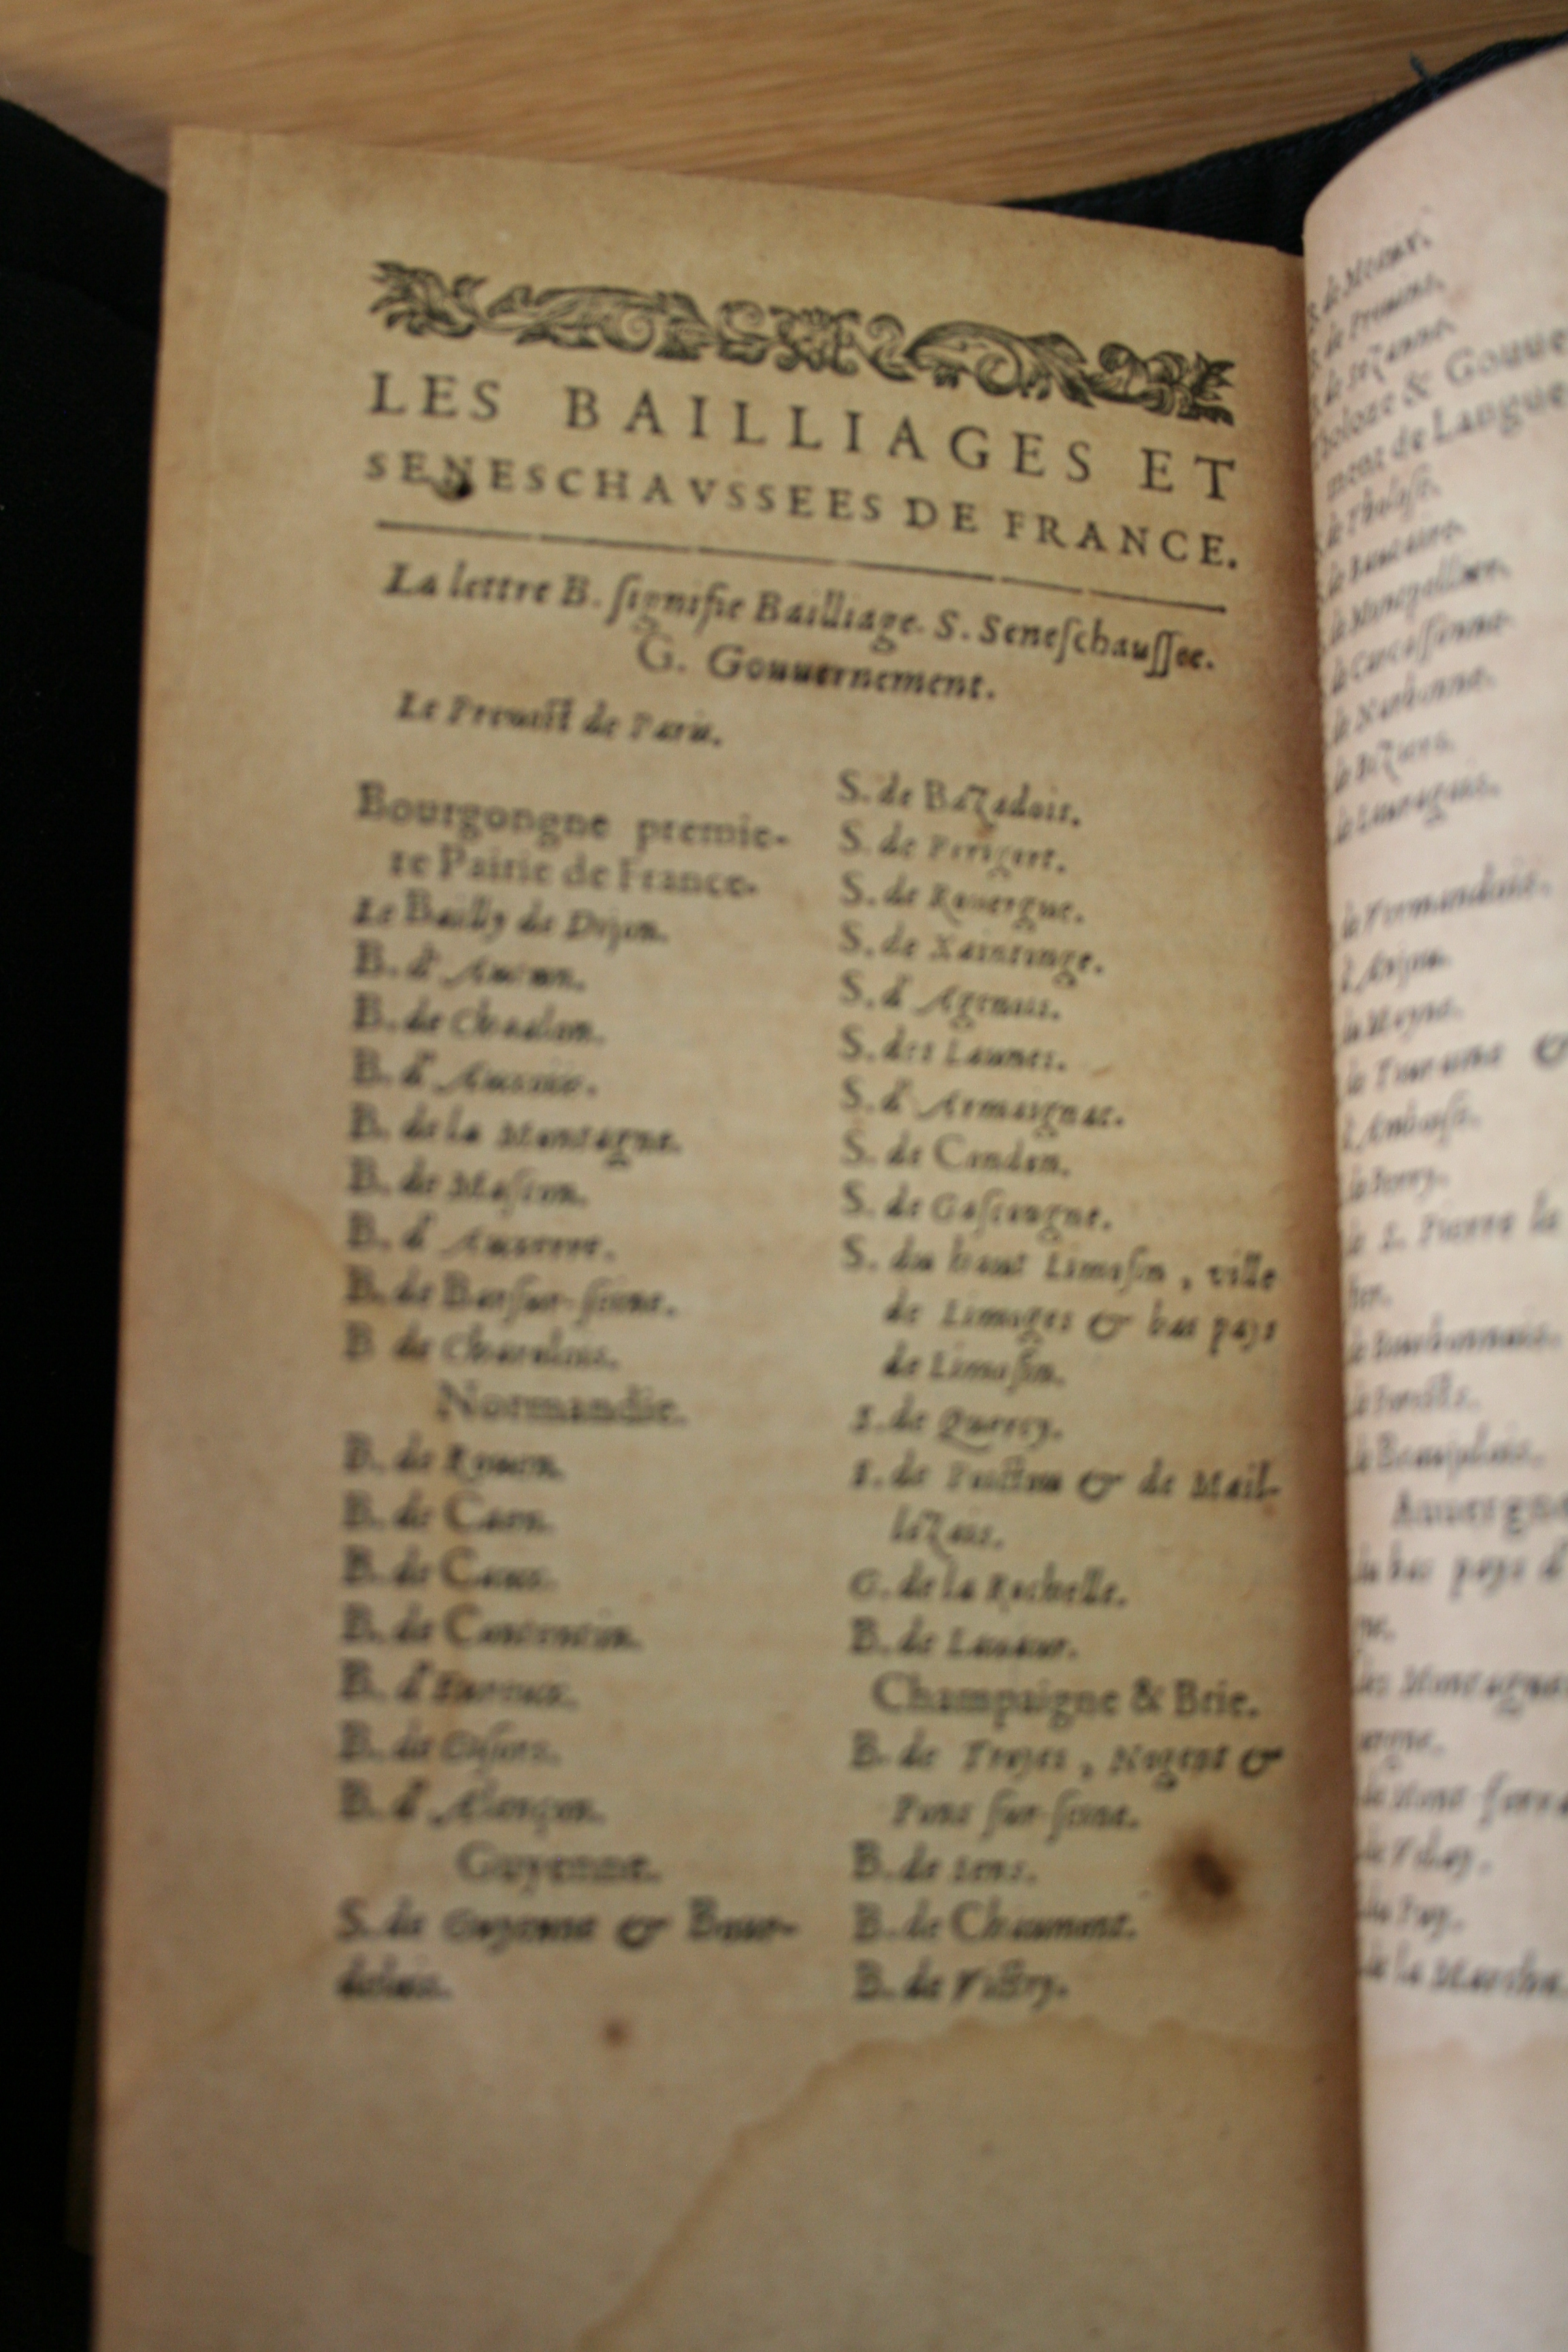 LES BAILLIAGES ET
SENESCHAVSSEES DE FRANCE.
La lettre B. ſignifie Bailliage. S. Seneſchauſſee.
G. Gouuernement.
Le Preuoſt de Paris.
Bourgongne premie-
re Pairie de France.
Le Bailly de Dijon.
B. d'
B. de Chaalon.
B. d' Auxois.
B. de la Montagne.
B. de Maſcon.
B. d' Auxerre.
B. de Barſur-ſeine.
B de Charolois.
Normandie.
B. de Rouen.
B. de Caen.
B. de Caux.
B. de Constentin.
B. d'Eureux.
B. de Giſors.
B. d' Alençon.
Guyenne.
S. de Guyenne & Bour-
delois.
S. de Bazadois.
S. de Perigort.
S. de Rouergue.
S. de Xaintonge.
S. d' Agenois.
S. des Launes.
S. d' Armaignac.
S. de Condon.
S. de Gaſcongne.
S. du haut Limoſin, ville
de Limoges & bas pays
de Limoſin.
S. de Quercy.
S. de Poictou & de Mail-
lezais.
G. de la Rochelle.
B. de
Champaigne & Brie.
B. de Troyes, Nogent &
Pont ſur-ſeine.
B. de Sens.
B. de Chaumont.
B. de Victry.
de Meaux.
de Prouins.
de Sezanne.
& Gouue
ment de Langue
de Tholoſe.
de Beaucaire.
de Montpellier.
de Carcaſſonne.
de Narbonne.
de Beziers.
de Lauragais.
de Vermandois.
d'Anjou.
du Mayne.
de Touraine &
d'Amboiſe.
de Berry.
de S. Pierre le
de Bourbonnois.
de Foreſts.
de Beaujolois.
Auuergne
du bas pays d'
des Montagnes
de Mont-ferra
de Velay.
du Puy.
de la Marche.